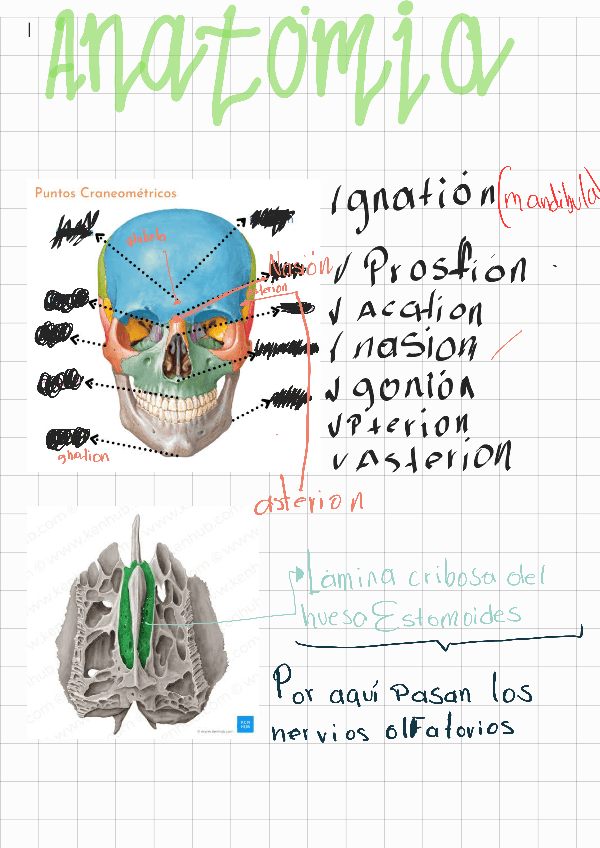 Anatomia
Puntos Craneométricos
glabela
Nasión
asterion
gnation
gnatión (mandibula)
Prostion
Acation
nasion
gonión
Pterion
Asterion
asterion
Lámina cribosa del
hueso Estomoides
Por aquí pasan los
nervios olfatorios
KEN
HUB
© www.kenhub.com